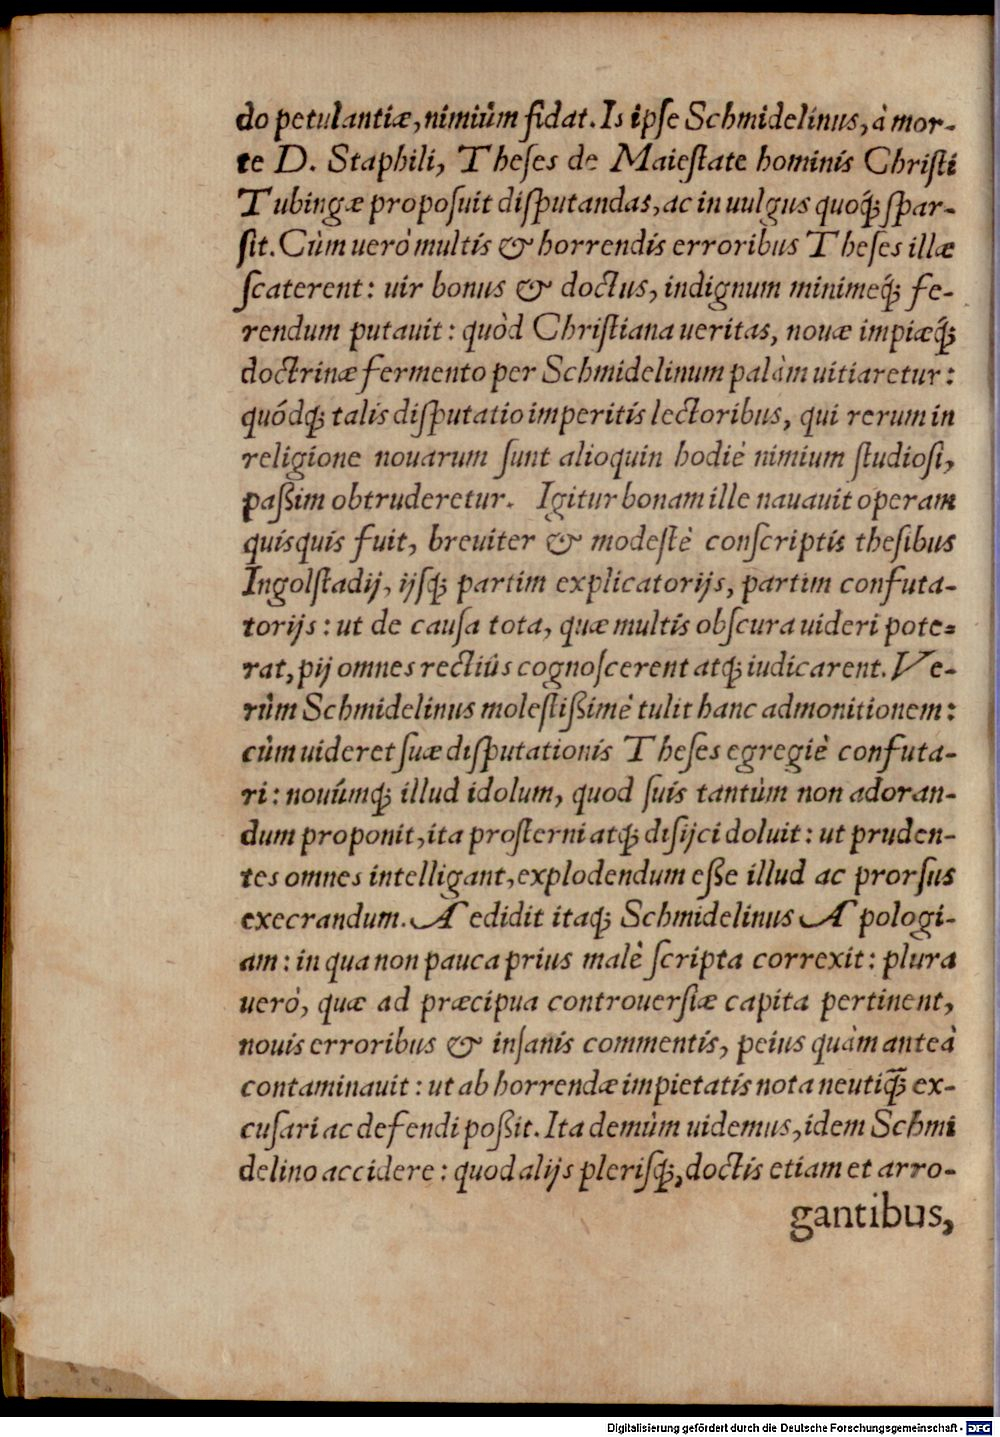 do petulantiæ, nimiùm fidat. Is ipſe Schmidelinus, à mor-
te D. Staphili, Theſes de Maieſtate hominis Chriſti
Tubingæ propoſuit diſputandas, ac in uulgus quoq́; ſpar-
ſit. Cùm uerò multis & horrendis erroribus Theſes illæ
ſcaterent: uir bonus & doctus, indignum minimeq́; fe-
rendum putauit: quòd Chriſtiana ueritas, nouæ impiæq́;
doctrinæ fermento per Schmidelinum palàm uitiaretur:
quódq; talis diſputatio imperitis lectoribus, qui rerum in
religione nouarum ſunt alioquin hodiè nimium ſtudioſi,
paßim obtruderetur. Igitur bonam ille nauauit operam
quisquis fuit, breuiter & modeſtè conſcriptis theſibus
Ingolſtadij, ijſq; partim explicatorijs, partim confuta-
torijs: ut de cauſa tota, quæ multis obſcura uideri pote=
rat, pij omnes rectiùs cognoſcerent atq; iudicarent. Ve-
rùm Schmidelinus moleſtißimè tulit hanc admonitionem:
cùm uideret ſuæ diſputationis Theſes egregiè confuta-
ri: nouúmq; illud idolum, quod ſuis tantùm non adoran-
dum proponit, ita proſterni atq; diſijci doluit: ut pruden-
tes omnes intelligant, explodendum eße illud ac prorſus
execrandum. Aedidit itaq; Schmidelinus Apologi-
am: in qua non pauca prius malè ſcripta correxit: plura
uerò, quæ ad præcipua controuerſiæ capita pertinent,
nouis erroribus & inſanis commentis, peius quàm anteà
contaminauit: ut ab horrendæ impietatis nota neutiq̃; ex-
cuſari ac defendi poßit. Ita demùm uidemus, idem Schmi
delino accidere: quod alijs pleriſq;, doctis etiam et arro-
gantibus,
Digitalisierung gefördert durch die Deutsche Forschungsgemeinschaft - DFG